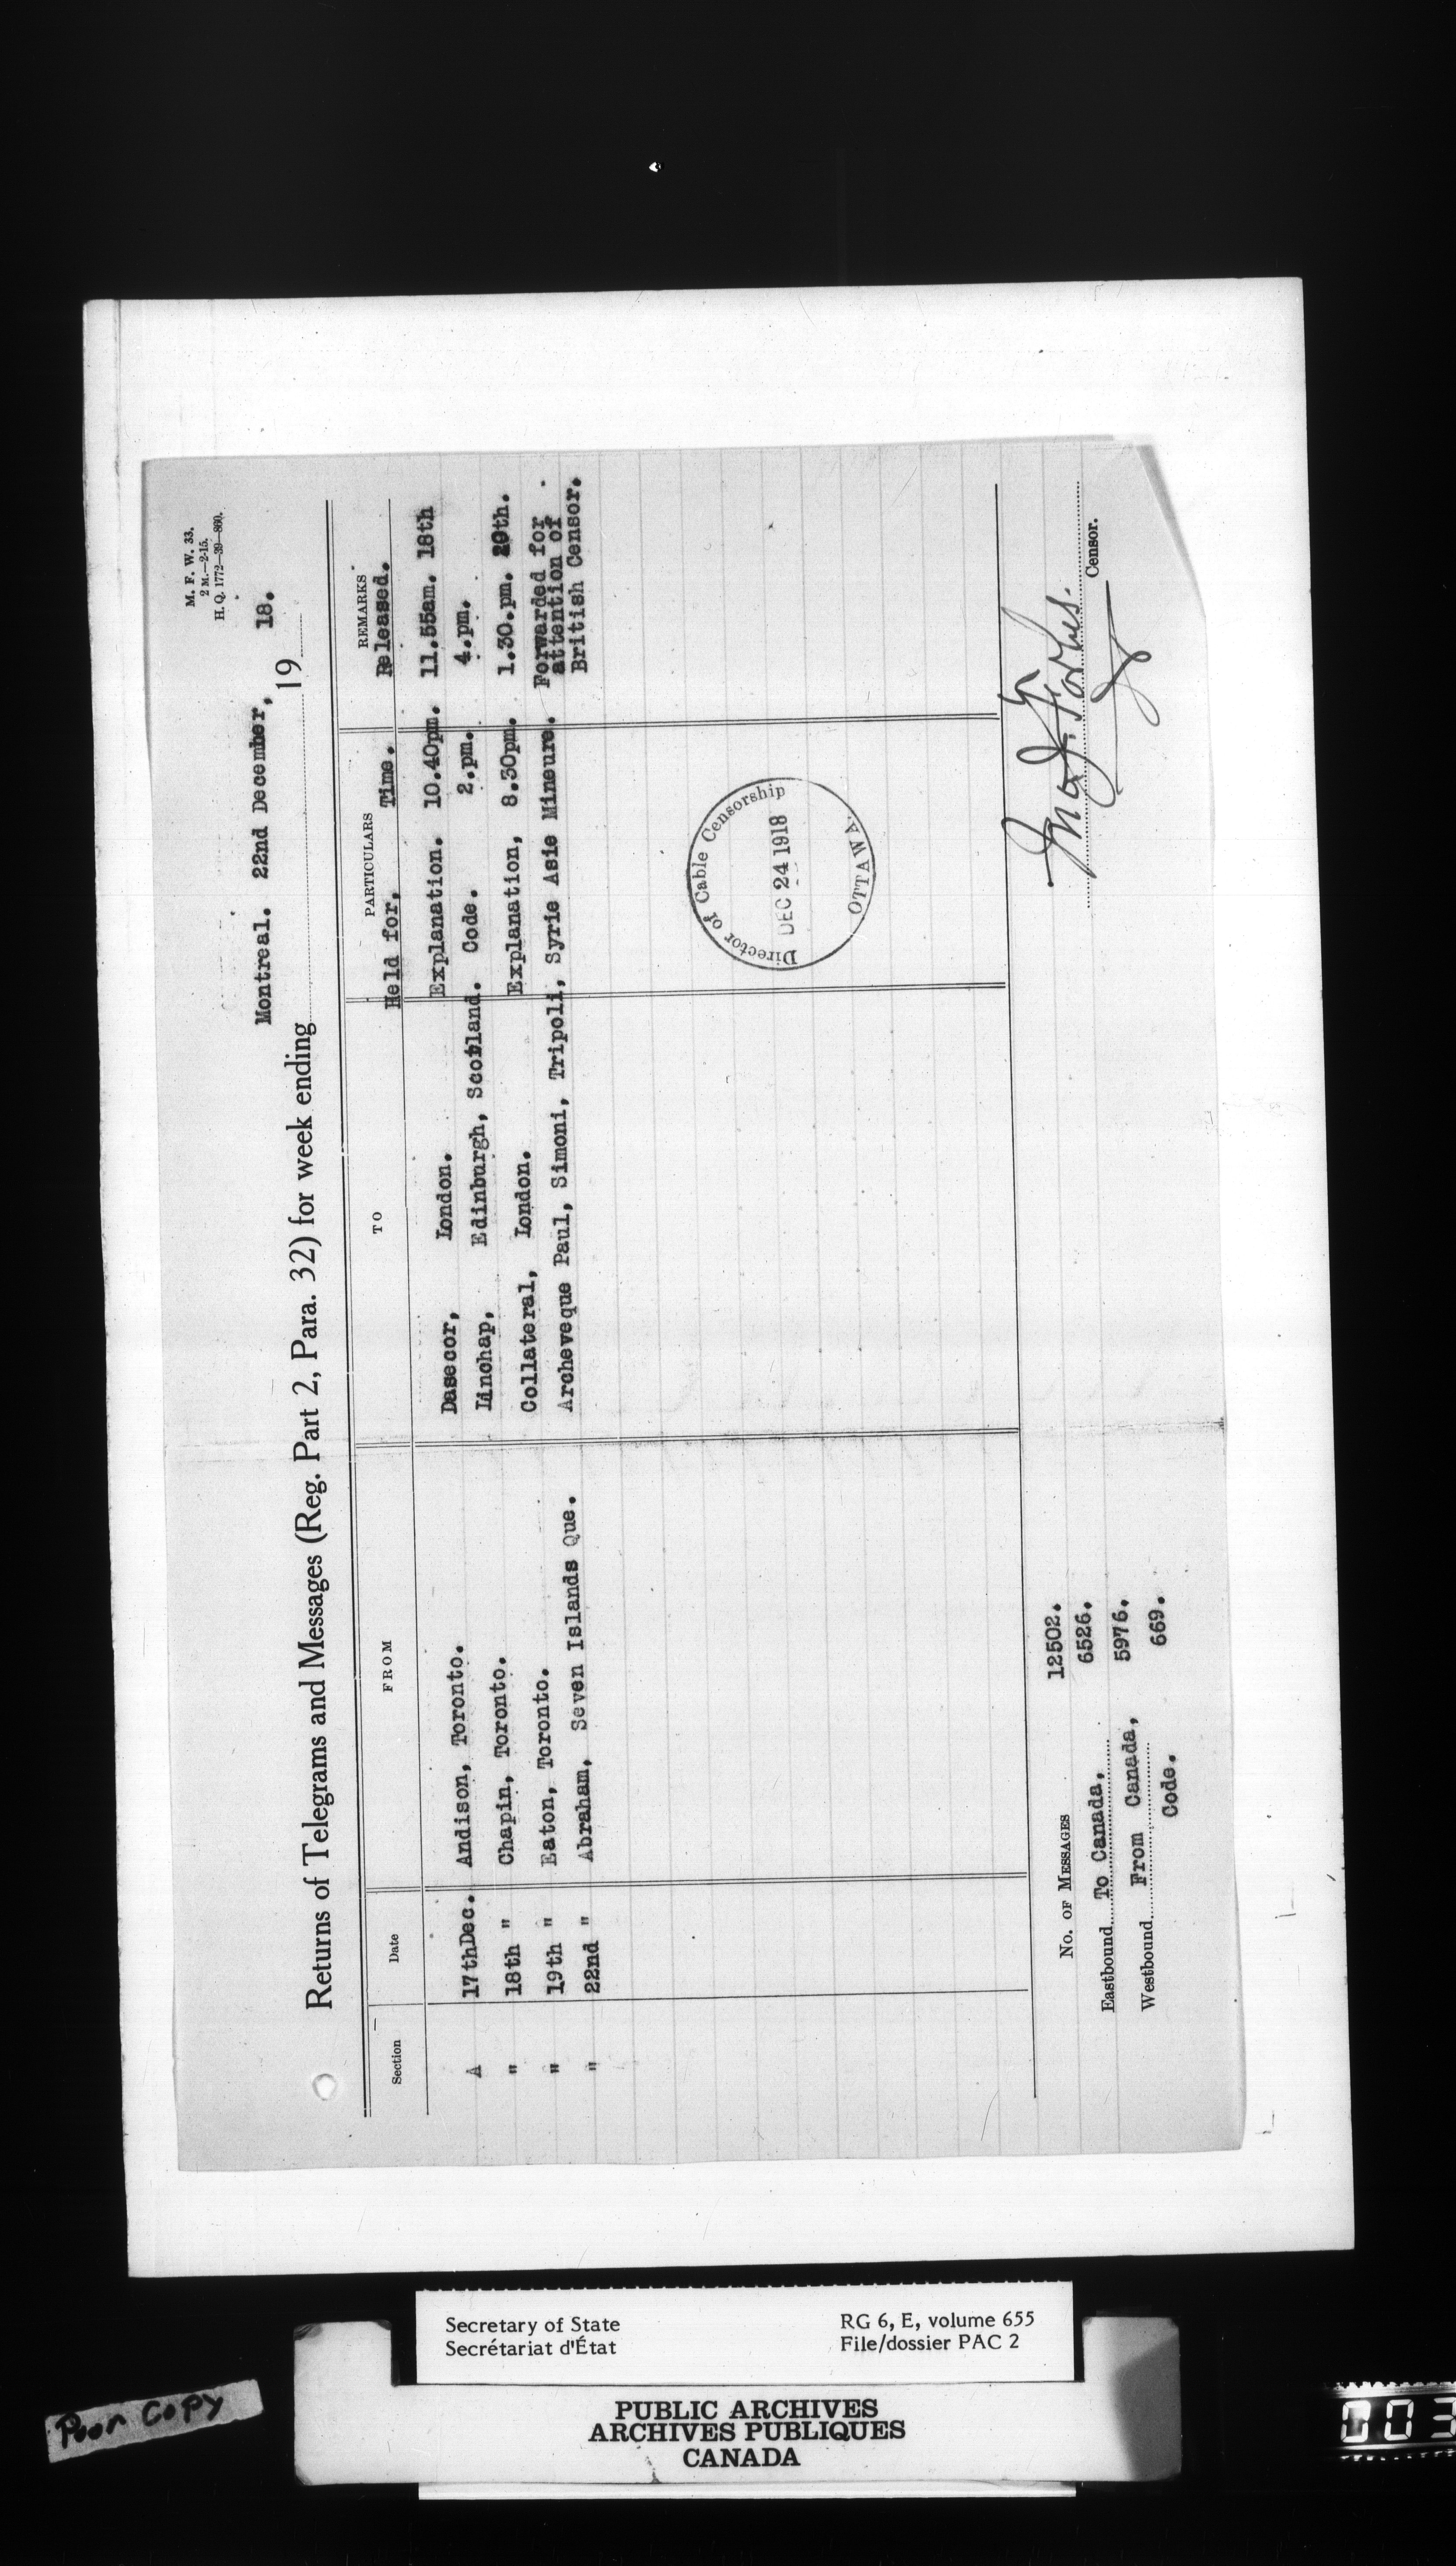 M. F. W. 33.
2 M.—2-15.
H. Q. 1772—39—860.
Montreal. 22nd December, 18.
Returns of Telegrams and Messages (Reg. Part 2, Para. 32) for week ending 19
Section Date FROM TO PARTICULARS REMARKS
Held for, Time. Released.
A 17thDec. Andison, Toronto. Dasecor, London. Explanation. 10.40pm. 11.55am. 18th
" 18th " Chapin, Toronto. Linchap, Edinburgh, Scotland. Code. 2.pm. 4.pm.
" 19th " Eaton, Toronto. Collateral, London. Explanation, 8.30pm. 1.30.pm. 20th.
" 22nd " Abraham, Seven Islands Que. Archeveque Paul, Simoni, Tripoli, Syrie Asie Mineure. Forwarded for
attention of
British Censor.
Director of Cable Censorship
DEC 24 1918
OTTAWA.
No. of Messages 12502.
Eastbound To Canada, 6526.
Westbound From Canada, 5976.
Code. 669.
Censor.
Secretary of State
Secrétariat d'État
RG 6, E, volume 655
File/dossier PAC 2
Poor Copy
PUBLIC ARCHIVES
ARCHIVES PUBLIQUES
CANADA
003